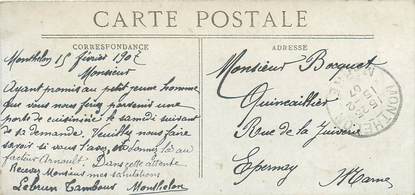 CARTE POSTALE
CORRESPONDANCE
ADRESSE
Monthelon 15 février 1907
Monsieur
Ayant promis au petit jeune homme
que vous nous fass parvenir une
porte de cuisinière le samdi suivant
de sa demande. Veuillez nous faire
savoir si vous l'avez, et donnez la au
facteur Arnoult. Dans cette attente
Recevez Monsieur mes salutations
Lebrun Tambour Monthelon
Monsieur Bocquet
Quincaillier
Rue de la Juiverie
Epernay
Marne
MONTHELON
15-2
07
MARNE